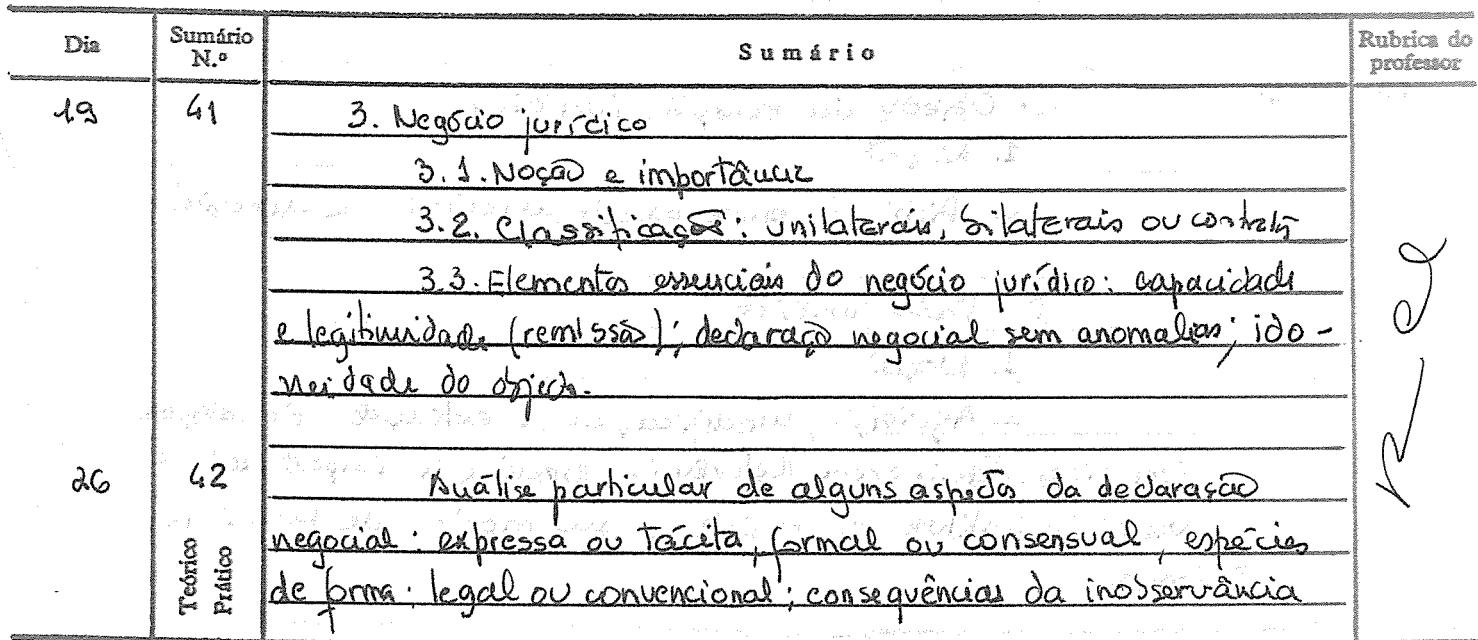 Dia Sumário N.º Sumário Rubrica do professor
19 41 3. Negócio jurídico
3.1. Noção e importância
3.2. Classificação: unilaterais, bilaterais ou contratos
3.3. Elementos essenciais do negócio jurídico: capacidade
e legitimidade (remissão); declaração negocial sem anomalias; ido-
neidade do objecto.
26 42 Análise particular de alguns aspectos da declaração
Teórico Prático negocial: expressa ou tácita, formal ou consensual, espécies
de forma: legal ou convencional; consequências da inobservância